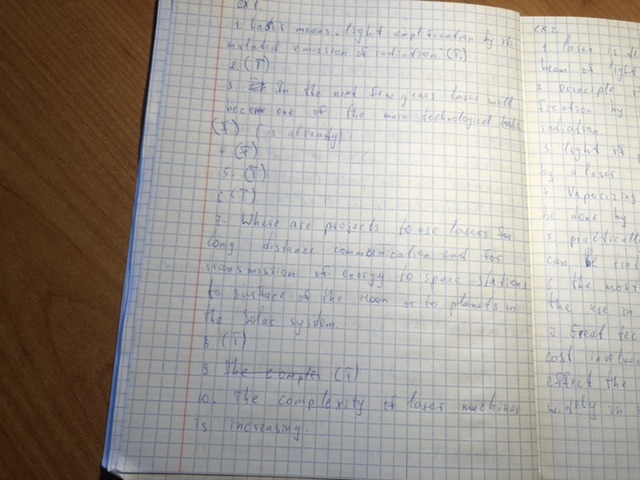 ex 1
1. Laser means "light amplification by sti-
mulated emission of radiation (T.)
2 (T)
3 In the next few years laser will
become one of the main technological tools
(F) (is already)
4 (F)
5. (T)
6 (T)
7. Where are projects to use lasers for
long distance communication and for
transmission of energy to space stations
to surface of the Moon or to planets in
the Soler system.
8 (T)
9 The complex (T)
10. The complexity of laser machines
is increasing.
ex 2.
1 laser is
beam of light
2 principle
by
radiation
3 light
by a laser
4 Vaporizing
be done by
5 practicall
can be
6 the most
the use in
7 Great tec
cost involve
effect the
widely in